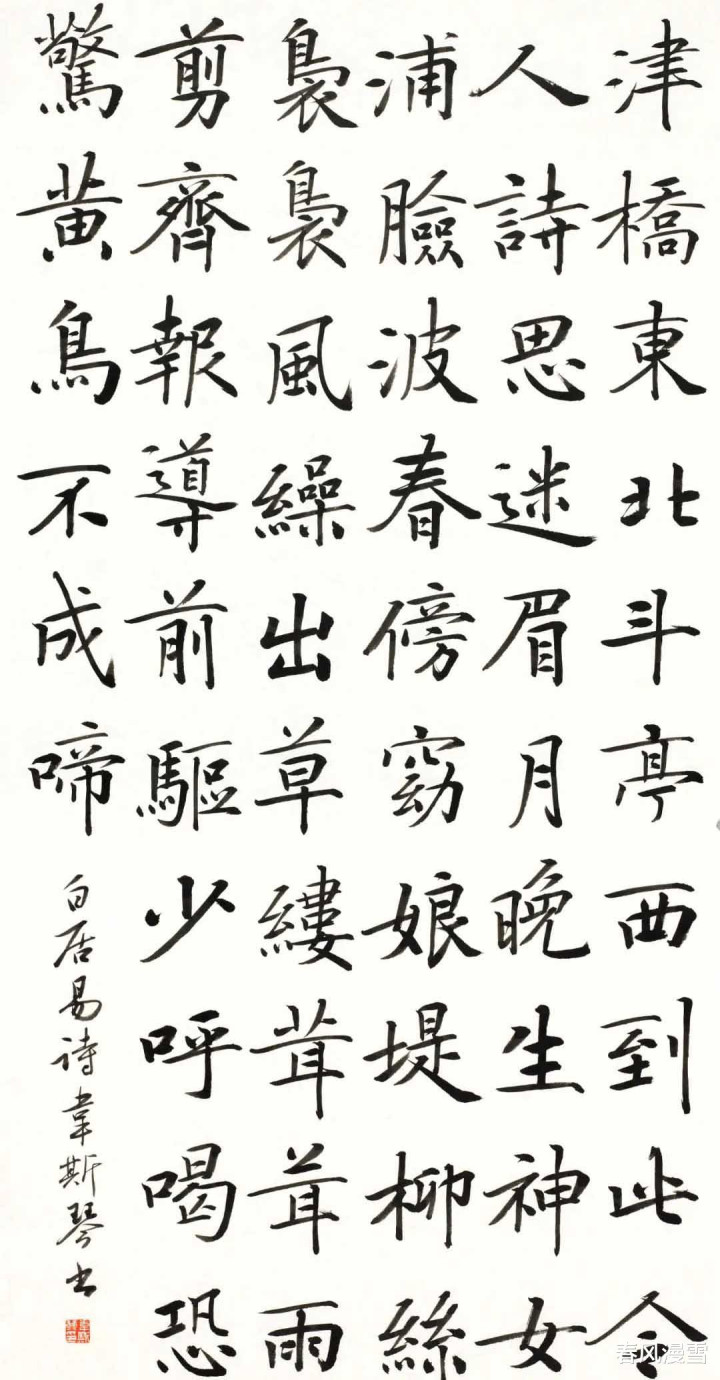 津橋東北斗亭西到此令
人詩思迷眉月晚生神女
浦臉波春傍窈娘堤柳絲
裊裊風繰出草縷茸茸雨
剪齊報導前驅少呼喝恐
驚黃鳥不成啼
白居易詩韋斯琴书
春风漫雪